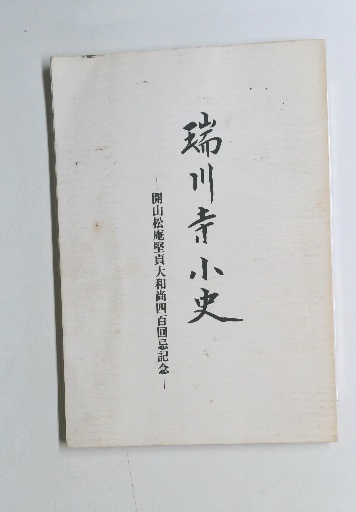 瑞川寺小史
―開山松庵堅貞大和尚四百回忌記念―